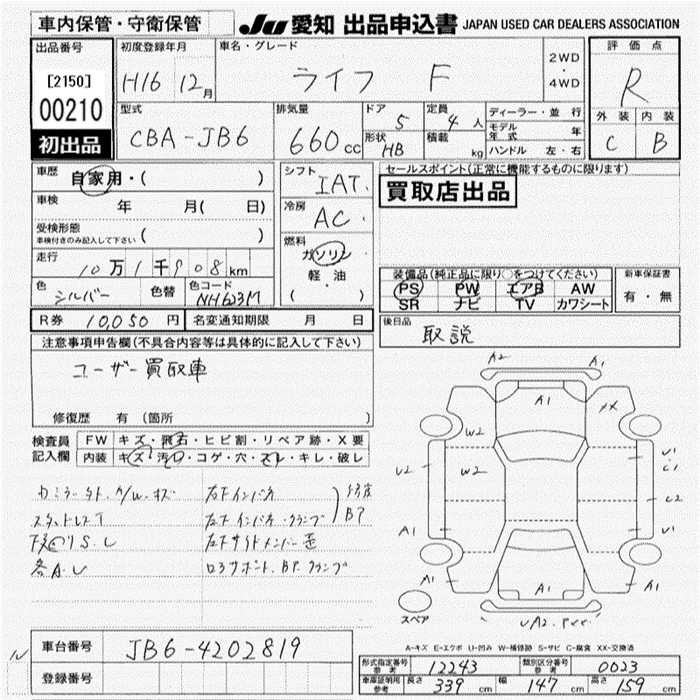 車内保管・守衛保管
JU 愛知 出品申込書 JAPAN USED CAR DEALERS ASSOCIATION
出品番号
[2150]
00210
初出品
初度登録年月
H16 12月
車名・グレード
ライフ F
2WD
・
4WD
評価点
R
外装 内装
C B
型式
CBA-JB6
排気量
660cc
ドア 5
形状 HB
定員 4人
積載 kg
ディーラー・並行
モデル年式 年
ハンドル 左・右
車歴
自家用・( )
車検 年 月( 日)
受検形態
車検付きのみ記入して下さい ( )
走行
10万1千908km
色 シルバー 色替 色コード NH623M
シフト IAT.
冷房 AC
燃料
ガソリン
軽油
( ・ )
セールスポイント(正常に機能するものに限ります)
買取店出品
装備品(純正品に限り○をつけてください)
PS PW エアB AW
SR ナビ TV カワシート
新車保証書
有・無
R券 10,050円 名変通知期限 月 日
後日品
取説
注意事項申告欄(不具合内容等は具体的に記入して下さい)
ユーザー買取車
修復歴 有 (箇所 )
検査員記入欄
FW キズ・飛石・ヒビ割・リペア跡・X要
内装 キズ・汚・コゲ・穴・スレ・キレ・破レ
左下インパネ
左下サイドメンバー歪
A2 A1
A1
XX
W2
W2
U2
A1
A1
A1
U1
U2
U1
A1
A1
スペア
A-キズ E-エクボ U-凹み W-補修跡 S-サビ C-腐食 XX-交換済
車台番号 JB6-4202819
登録番号
型式指定番号 参考 12243
類別区分番号 参考 0023
車庫証明用 参考 長さ 339cm 幅 147cm 高さ 159cm